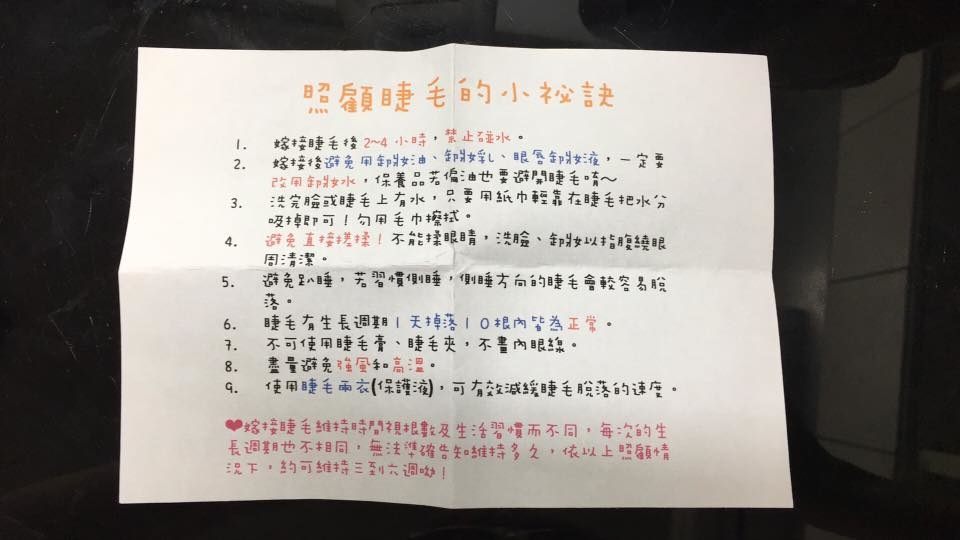 照顧睫毛的小祕訣
1. 嫁接睫毛後2~4小時，禁止碰水。
2. 嫁接後避免用卸妝油、卸妝乳、眼唇卸妝液，一定要
改用卸妝水，保養品若偏油也要避開睫毛唷～
3. 洗完臉或睫毛上有水，只要用紙巾輕靠在睫毛把水分
吸掉即可！勿用毛巾擦拭。
4. 避免直接搓揉！不能揉眼睛，洗臉、卸妝以指腹繞眼
周清潔。
5. 避免趴睡，若習慣側睡，側睡方向的睫毛會較容易脫
落。
6. 睫毛有生長週期1天掉落10根內皆為正常。
7. 不可使用睫毛膏、睫毛夾，不畫內眼線。
8. 盡量避免強風和高溫。
9. 使用睫毛雨衣(保護液)，可有效減緩睫毛脫落的速度。
❤嫁接睫毛維持時間視根數及生活習慣而不同，每次的生
長週期也不相同，無法準確告知維持多久，依以上照顧情
況下，約可維持三到六週呦！